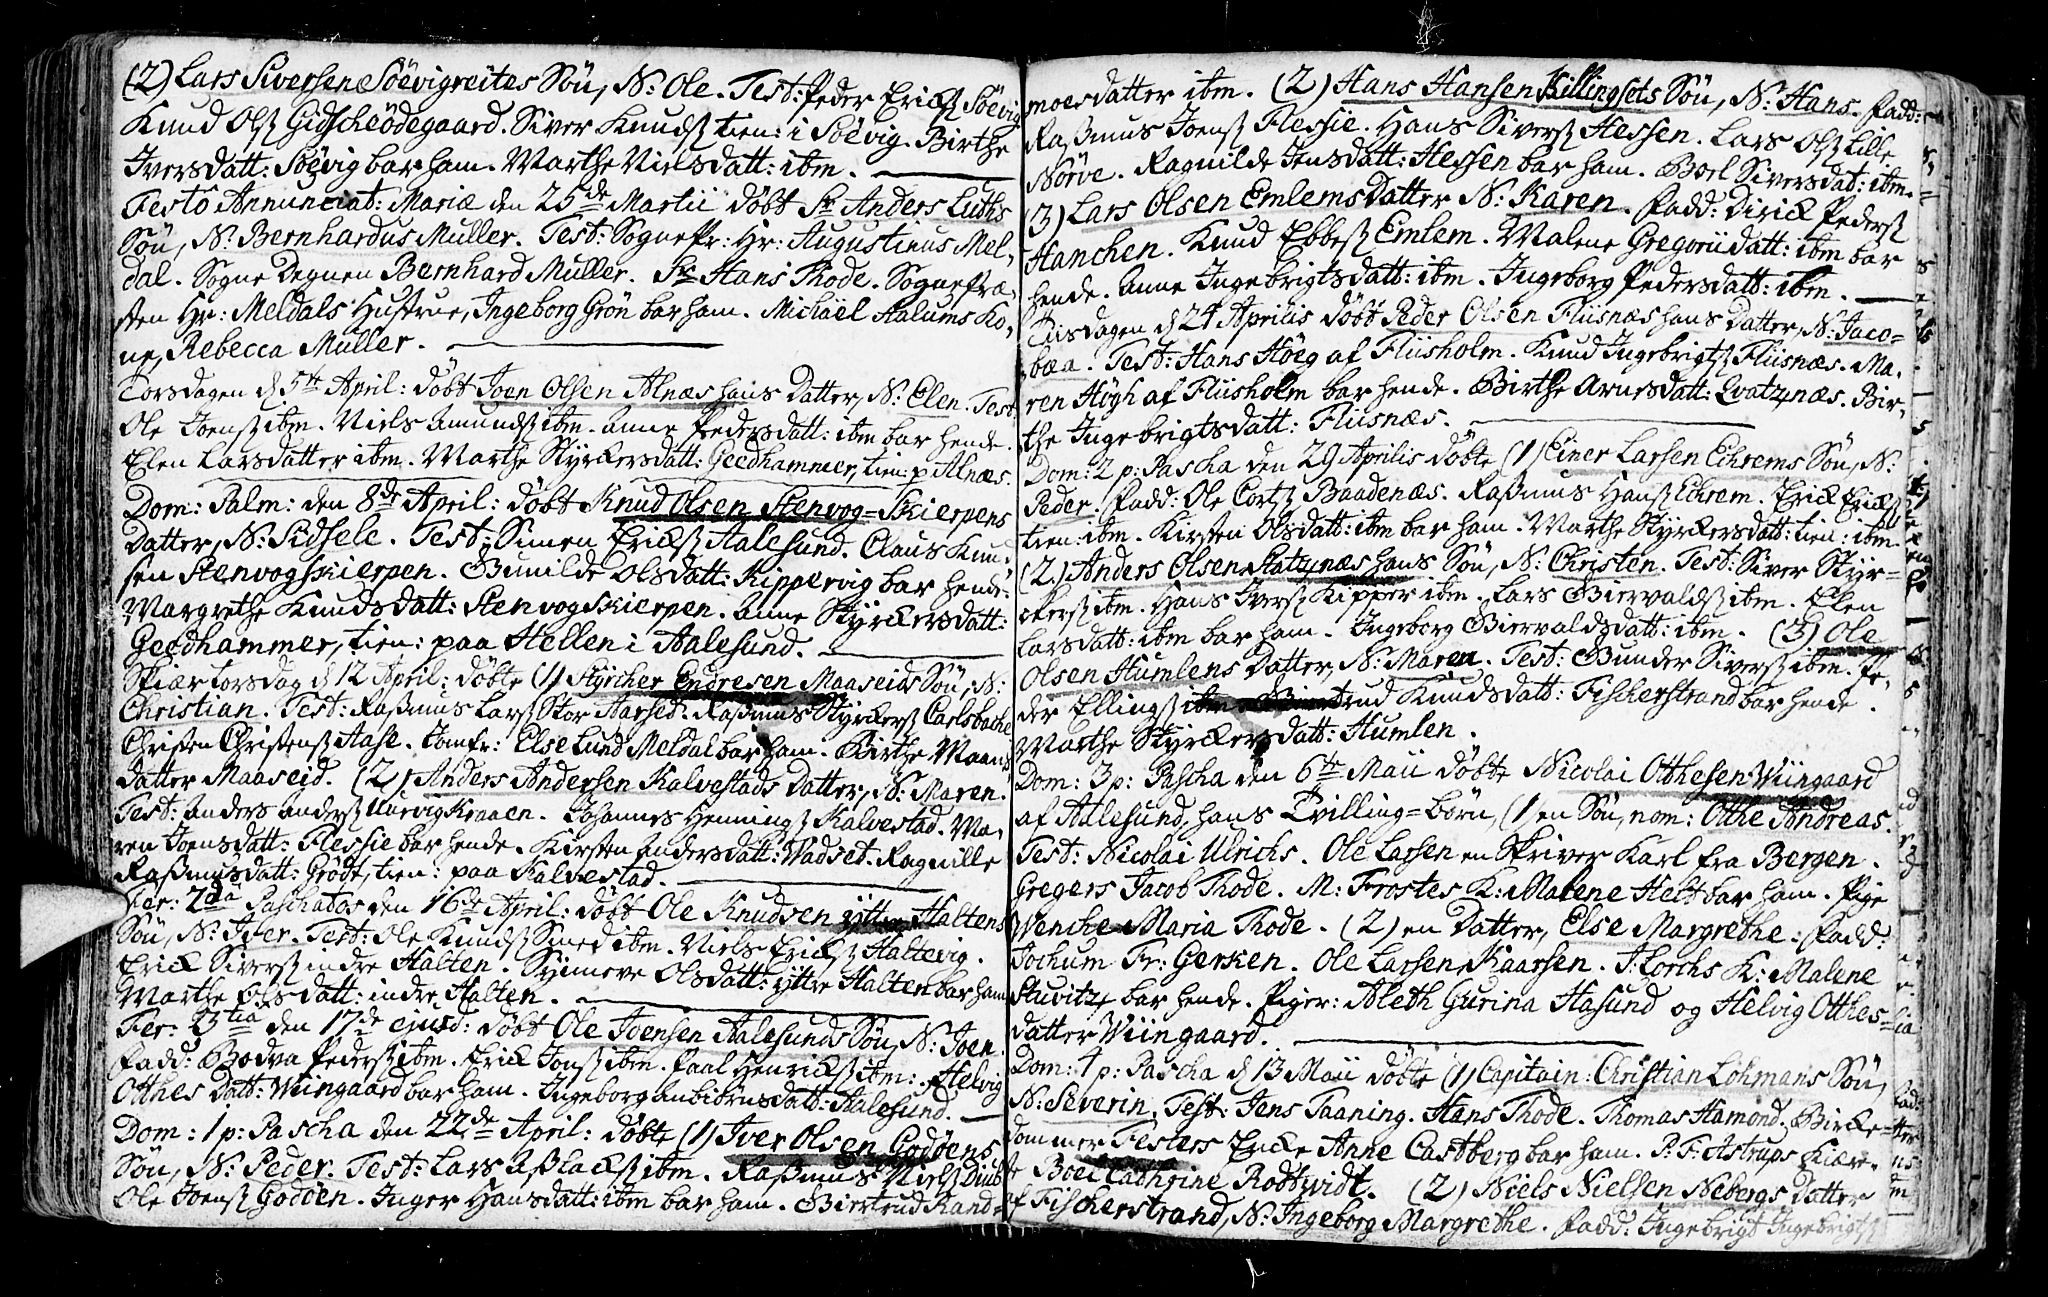 (2) Lars Siversen Söevigreites Sön, N: Ole. Test: Peder Ericks: Söevig
Knud Ols: Gidscheödegaard. Siver Knuds: tien: i Söevig. Birthe
Iversdatt: Söevig bar ham. Marthe Nielsdatt: ibm.
Festo Annunciat: Mariæ den 25de Martii döbt Sr Anders Luths
Sön, N: Bernhardus Muller. Test: Sognepr: Hr: Augustinus Mel-
dal. Sogne Degnen Bernhard Muller. Sr Hans Thode. Sognepræ-
sten Hr: Meldals Hustrue, Ingeborg Grön bar ham. Michäel Aalums Ko-
ne, Rebecca Muller.
Torsdagen d 5te April: döbt Joen Olsen Alnæs hans Datter, N: Elen. Test
Ole Joens: ibm. Niels Amunds: ibm. Anne Pedersdatt: ibm bar hende.
Elen Larsdatter ibm. Marthe Styrckersdatt: Geedhammer, tien: p Alnæs.
Dom: Palm: den 8de April: döbt Knud Olsen Stenvog=Skierpens
Datter, N: Sidsele. Test: Simen Ericks: Aalesund. Claus Knud-
sen Stenvogskierpen. Gunilde Olsdatt: Kippervig bar hende.
Margrethe Knudsdatt: Stenvogskierpen. Anne Styrckersdatt:
Geedhammer, tien: paa Hellen i Aalesund.
Skiærtorsdag d 12 April: döbte (1) Styrcher Endresen Maaseids Sön, N:
Christian. Test: Rasmus Lars: Stor Aarset. Rasmus Styrckers: Carlsbache
Christen Christens: Aase. Jomfr: Else Lund Meldal bar ham. Birthe Maans
datter Maaseid. (2) Anders Andersen Kalvestads Datter, N: Maren.
Test: Anders Anders: Uurvigkraaen. Johannes Hennings: Kalvestad. Ma-
ren Joensdatt: Flessie bar hende. Kirsten Andersdatt: Vadset. Ragnille
Rasmusdatt: Grödt, tien: paa Kalvestad.
Fer: 2da Paschatos den 16de April: döbt Ole Knudsen yttre Haltens
Sön, N: Iver. Test: Ole Knuds: Smed ibm. Niels Ericks: Haltevig.
Erick Sivers: indre Halten. Synneve Olsdatt: yttre Halten bar ham
Marthe Olsdatt: indre Halten.
Fer: 3tia den 17de ejusd: döbt Ole Joensen Aalesunds Sön, N: Joen.
Fadd: Bodva Peders: ibm. Erick Jons: ibm. Paal Henricks: ibm: Helvig
Otthes Datt: Wiingaard bar ham. Ingeborg Anbiörnsdatt: Aalesund.
Dom: 1 p: Pascha den 22de April: döbte (1) Iver Olsen Godöens
Sön, N: Peder. Test: Lars Aslacks: ibm. Rasmus Niels: Diub
Ole Joens: Godöen. Inger Hansdatt: ibm bar ham. Biertrud Rand-
moesdatter ibm. (2) Hans Hansen Killingsets Sön, N: Hans. Fadd:
Rasmus Joens: Flessie. Hans Sivers: Hessen. Lars Ols: Lille
Nörve. Ragnilde Jensdatt: Hessen bar ham. Boel Siversdat: ibm.
(3) Lars Olsen Emlems Datter N: Karen. Fadd: Dirick Peders:
Hanchen. Knud Ebbes: Emlem. Malene Gregoriidatt: ibm bar
hende. Anne Ingebrigtsdatt: ibm. Ingeborg Pedersdatt: ibm.
Tiisdagen d 24 Aprilis döbt Peder Olsen Fliisnæs hans Datter, N: Jaco-
bæa. Test: Hans Höeg af Fliisholm. Knud Ingebrigts: Fliisnæs. Ma-
ren Högh af Fliisholm bar hende. Birthe Arnesdatt: Qvatznæs. Bir-
the Ingebrigtsdatt: Fliisnæs.
Dom: 2 p: Pascha den 29 Aprilis döbte (1) Einer Larsen Echrems Sön, N:
Peder. Fadd: Ole Corts: Baadenæs. Rasmus Hans: Echrem. Erick Ericks:
tien: ibm. Kirsten Olsdatt: ibm bar ham. Marthe Styrckersdatt: tien: ibm.
(2) Anders Olsen Slatznæs hans Sön, N: Christen. Test: Siver Styr-
ckers: ibm. Hans Ivers: Kipper ibm. Lars Biervalds: ibm. Elen
Larsdatt: ibm bar ham. Ingeborg Biervaldsdatt: ibm. (3) Ole
Olsen Humlens Datter, N: Maren. Test: Gunder Sivers: ibm. Pe-
der Ellings: ibm Knudsdatt: Fischerstrand bar hende.
Marthe Styrckersdatt: Humlen.
Dom: 3 p: Pascha den 6te Maii döbte Nicolai Otthesen Wiingaard
af Aalesund, hans Tvilling=Börn, (1) en Sön, nom: Otthe Andreas.
Test: Nicolai Ulrichs. Ole Larsen en Skriver Karl fra Bergen.
Gregers Jacob Thode. M: Frostes K: Malene Helt bar ham. Pige
Wencke Maria Thode. (2) en Datter, Else Margrethe. Fadd:
Jochum Fr: Gerken. Ole Larsen Kaarsen. J: Lorchs K: Malene
Stuvitz bar hende. Piger: Aleth Gurina Hasund og Helvig Otthes-
datter Wiingaard.
Dom: 4 p: Pascha d 13 Maii döbte (1) Capitain: Christian Lohmans Sön,
N: Severin. Test: Jens Taaning. Hans Thode. Thomas Hamond. Bircke-
dommer Festers Encke Anne Castberg bar ham. P: F: Astrups Kiære-
ste Boel Cathrine Rodtvidt. (2) Niels Nielsen Nebergs Datter
af Fischerstrand, N: Ingeborg Margrethe. Fadd: Ingebrigt Ingebrigts: